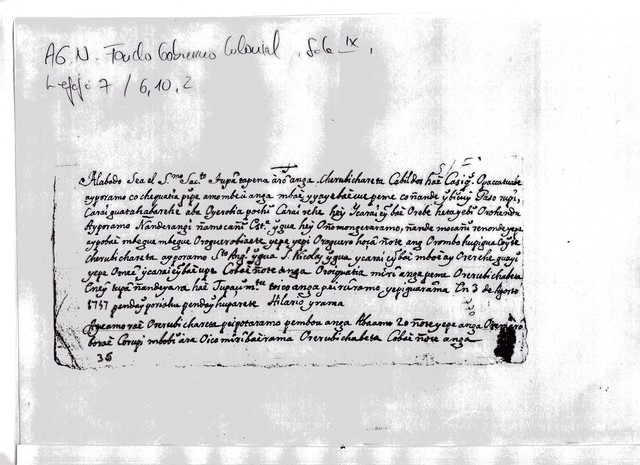 AGN. Fondo Gobierno Colonial, Sala IX,
Legajo 7 / 6, 10, 2
Alabado Sea el S.mo Sac.to tupã tapena ãrõ anga. cherubichareta Cabildos haé Casiq.s Opacatuabe
ayporamo co chequatia pipe amombeú anga mbaé yyayebaécue peme coñande ybicuy Paso rupi,
Carai guatahabarehe abe Oyerobia pochĩ Carai rehe hey Ycarai eỹ baé Orebe hetayebi Orohendu
Ayporamo Nanderangi ñamocañĩ Cst.o ygua hey Oñomongetaramo, ñande mocañĩ renonde yepe
aypobaé mbegue mbegue Oroguerobiaete yepe yepi Oroguero horĩ ñote ang Orombo hupigua Coỹte
cherubichareta ayporamo S.to Ang.l ygua S. Nicolas ygua ycarai eỹ baé mbae ay Orerehe guayu
yepe Orneé ycarai eỹ baé upe Cobaé ñote anga. Oroiquatia miri anga peme Orerubichabeta
Cney tupã ñandeyara haé Tupasy m.tu toico anga pe irũramo yepiguarama En 3 de Agosto
1757 penday poriahu penday huparete Hilario yrama
Ayeamo raé Orerubichareta peipotaramo pembou anga Abaamo 20 ñote yepe anga
boraé Corupi mbobĩ ara Oico miri baerama Orerubichabeta Cobaé ñote anga
36